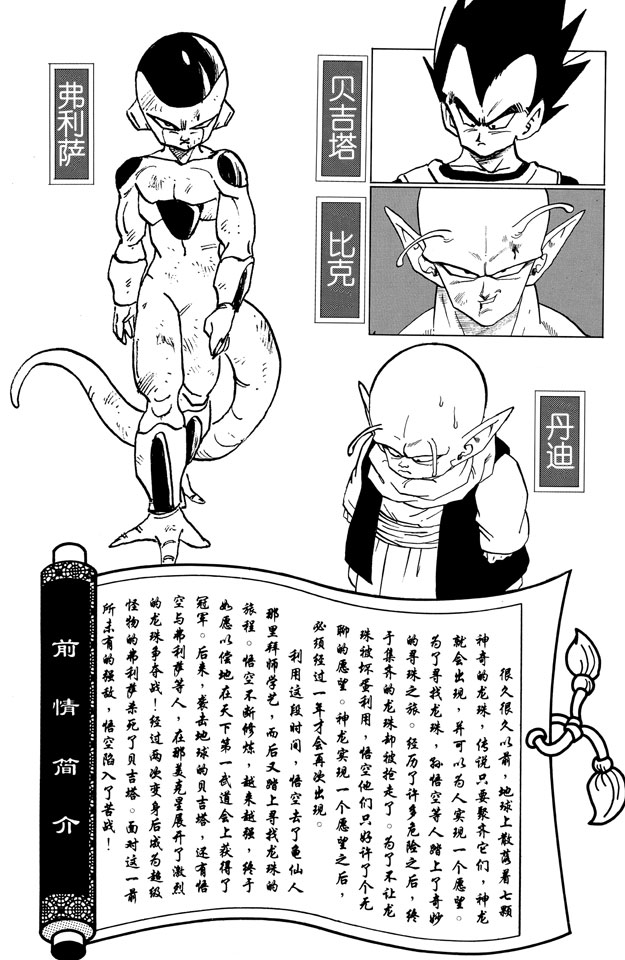 弗利萨
贝吉塔
比克
丹迪
前情简介
很久很久以前，地球上散落着七颗
神奇的龙珠，传说只要聚齐它们，神龙
就会出现，并可以为人实现一个愿望。
为了寻找龙珠，孙悟空等人踏上了奇妙
的寻珠之旅。经历了许多危险之后，终
于集齐的龙珠却被抢走了。为了不让龙
珠被坏蛋利用，悟空他们只好许了个无
聊的愿望。神龙实现一个愿望之后，
必须经过一年才会再次出现。
利用这段时间，悟空去了龟仙人
那里拜师学艺，而后又踏上寻找龙珠的
旅程。悟空不断修炼，越来越强，终于
如愿以偿地在天下第一武道会上获得了
冠军。后来，袭击地球的贝吉塔，还有悟
空与弗利萨等人，在那美克星展开了激烈
的龙珠争夺战！经过两次变身后成为超级
怪物的弗利萨杀死了贝吉塔。面对这一前
所未有的强敌，悟空陷入了苦战！